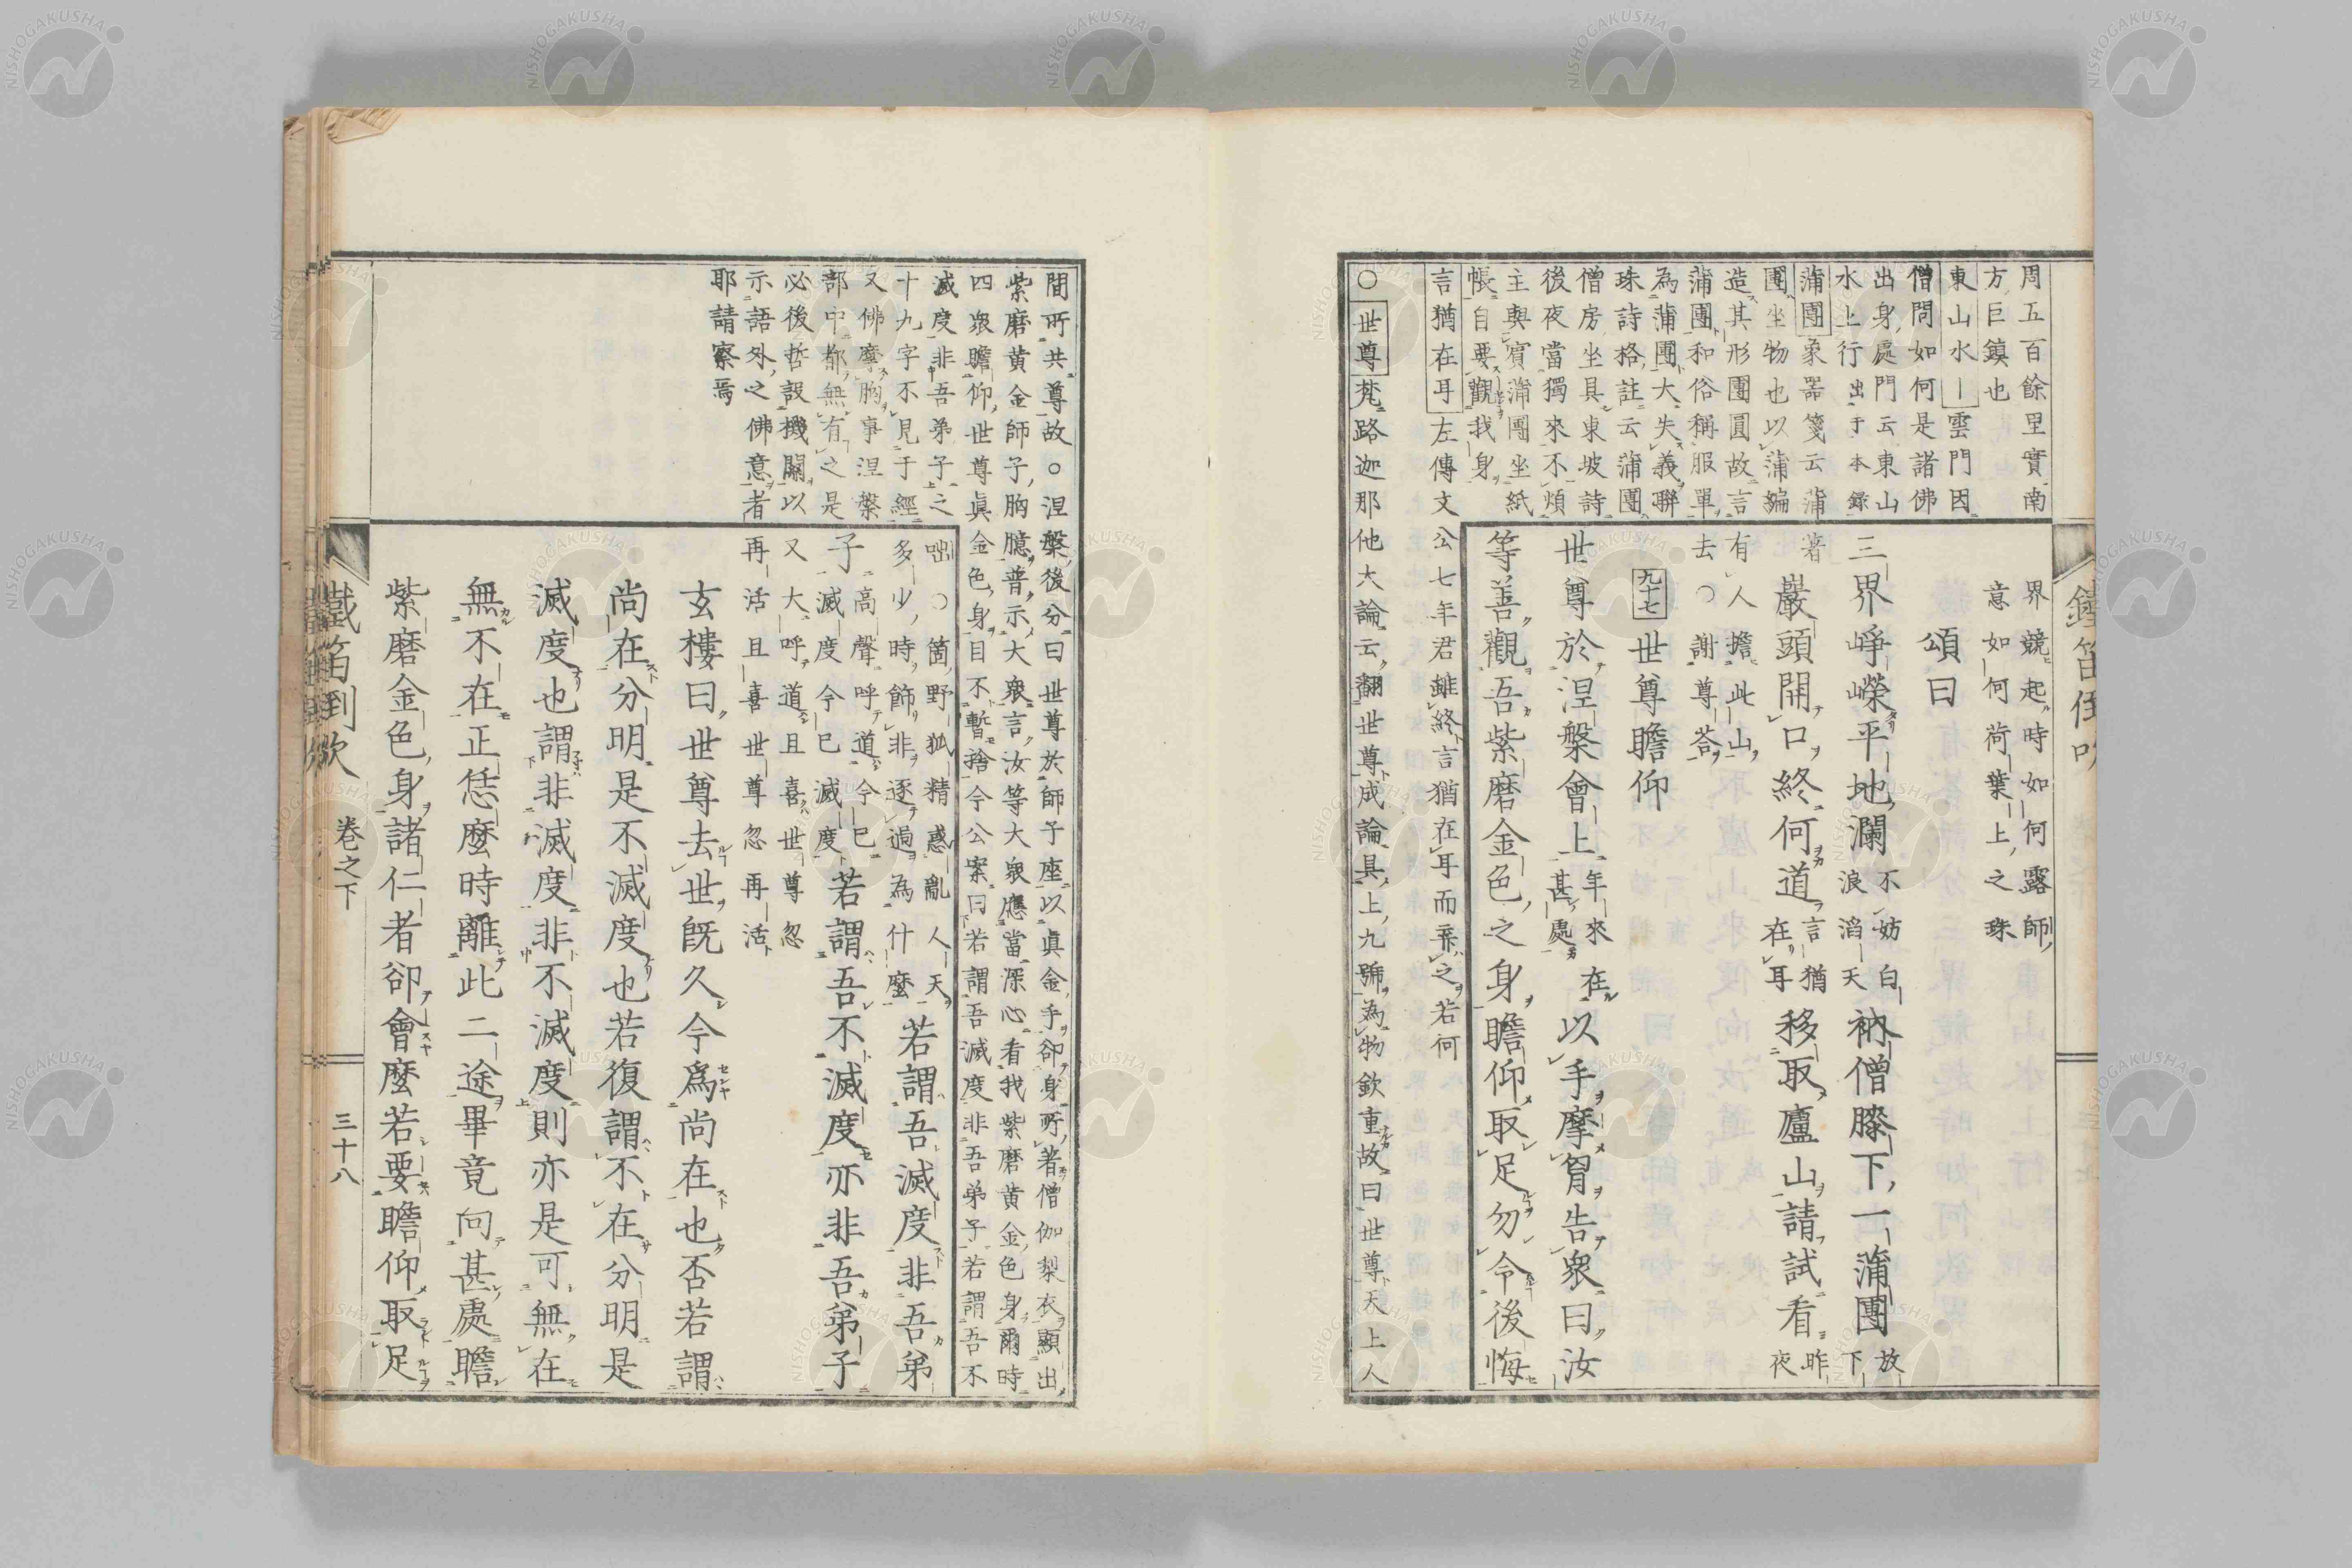 周五百餘里實南
方巨鎮也
東山水｜雲門因
僧問如何是諸佛
出身處門云東山
水上行出于本錄
蒲團象器箋云蒲
團坐物也以蒲編
造其形團圓故言
蒲團和俗稱服單
為蒲團大失義聯
珠詩格註云蒲團
僧房坐具東坡詩
後夜當獨來不煩
主與賓蒲團坐紙
帳自要觀我身
言猶在耳左傳文公七年君雖終言猶在耳而棄之若何
○世尊梵路迦那他大論云翻世尊成論具上九號為物欽重故曰世尊天上人
界競起時如何露師
意如何荷葉上之珠
頌曰
三界崢嶸平地瀾不妨白浪滔天衲僧膝下一蒲團放下
著巖頭開口終何道言猶在耳移取廬山請試看昨夜
有人擔此山
去○謝尊荅
九十七世尊瞻仰
世尊於涅槃會上年來在甚處在以手摩胷告衆曰汝
等善觀吾紫磨金色之身瞻仰取足勿令後悔
間所共尊故○涅槃後分曰世尊於師子座以眞金手卻身所著僧伽梨衣顯出
紫磨黃金師子胸臆普示大衆言汝等大衆應當深心看我紫磨黃金色身爾時
四衆瞻仰世尊眞金色身目不暫捨今公案曰若謂吾滅度非吾弟子若謂吾不
滅度非吾弟子之
十九字不見于經
又佛摩胸事涅槃
部中都無有之是
必後哲設機關以
示語外之佛意者
耶請察焉
咄○箇野狐精惑亂人天
多少時飾非逐過為什麼若謂吾滅度非吾弟
子高聲呼道今巳滅度今巳滅度若謂吾不滅度亦非吾弟子
又大呼道且喜世尊忽
再活且喜世尊忽再活
玄樓曰世尊去世既久今爲尚在也否若謂
尚在分明是不滅度也若復謂不在分明是
滅度也謂非滅度非不滅度則亦是可無在
無不在正恁麼時離此二途畢竟向甚處瞻
紫磨金色身諸仁者卻會麼若要瞻仰取足
鐵笛倒吹 卷之下 三十八